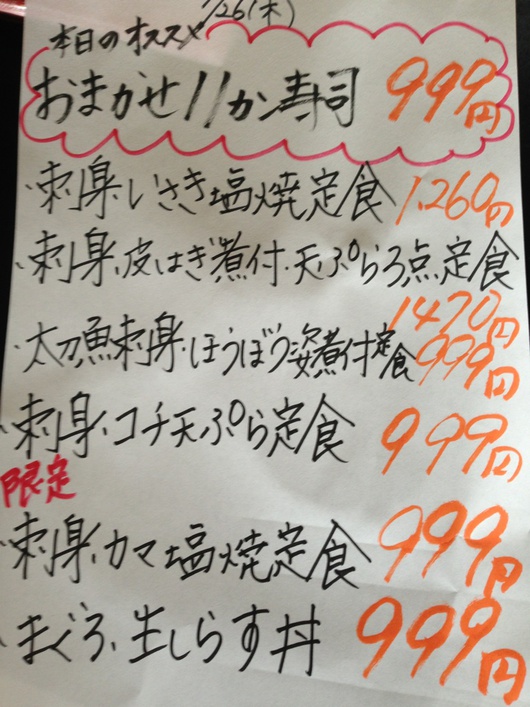 7/26(木)
本日のオススメ
おまかせ11かん寿司 999円
・刺身、いさき塩焼定食 1260円
・刺身、皮はぎ煮付・天ぷら3点定食
1470円
・太刀魚刺身・ほうぼう姿煮付定食 999円
・刺身、コチ天ぷら定食 999円
限定
・刺身、カマ塩焼定食 999円
・まぐろ、生しらす丼 999円